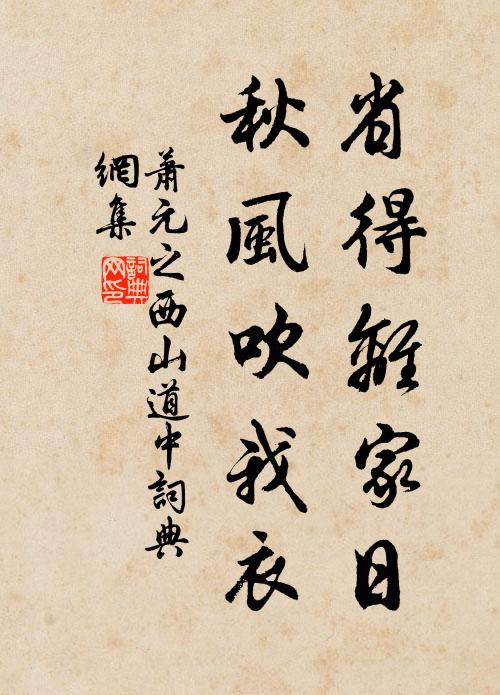 省得離家日
秋風吹我衣
蕭元之西山道中詞典
網集
詞典
网印